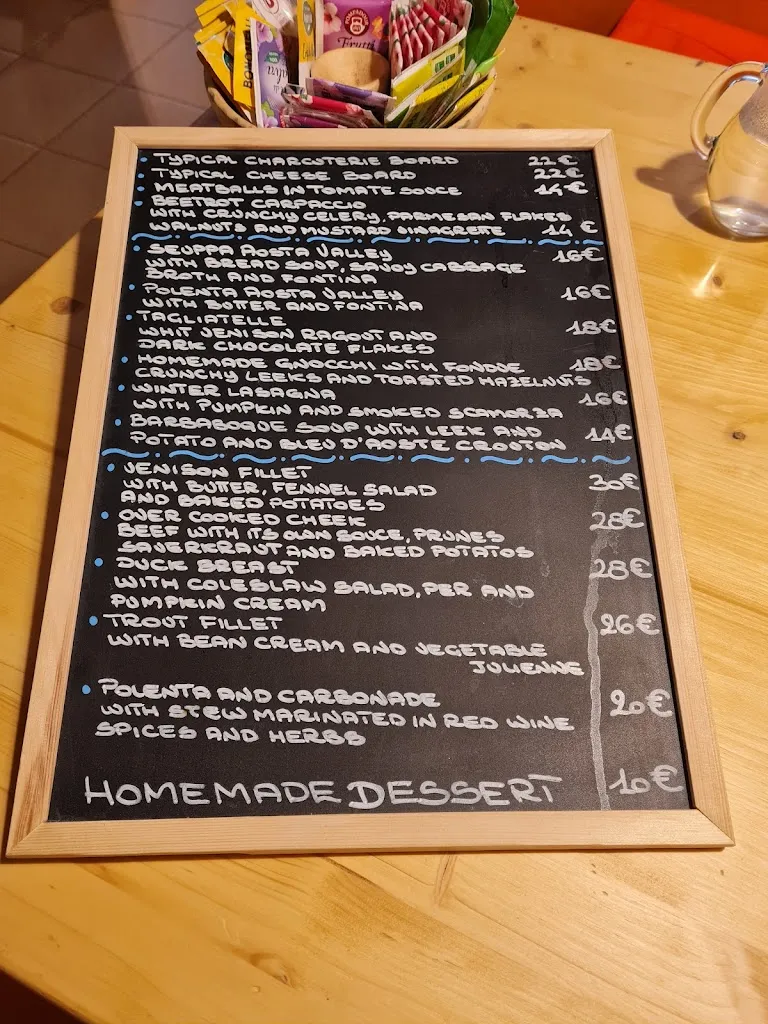 BONOMELLI
Frutti
TYPICAL CHARCUTERIE BOARD 22€
TYPICAL CHEESE BOARD 22€
MEATBALLS IN TOMATE SOUCE 14€
BEETROT CARPACCIO
WITH CRUNCHY CELERY, PARMESAN FLAKES
WALNUTS AND MUSTARD VINAGRETTE 14€
SEUPPA AOSTA VALLEY 16€
WITH BREAD SOUP, SAVOY CABBAGE
BROTH AND FONTINA
POLENTA AOSTA VALLEY 16€
WITH BUTTER AND FONTINA
TAGLIATELLE 18€
WHIT VENISON RAGOUT AND
DARK CHOCOLATE FLAKES
HOMEMADE GNOCCHI WITH FONDUE 18€
CRUNCHY LEEKS AND TOASTED HAZELNUTS
WINTER LASAGNA 16€
WITH PUMPKIN AND SMOKED SCAMORZA
BARBABOQUE SOUP WITH LEEK AND 14€
POTATO AND BLEU D'AOSTE CROUTON
VENISON FILLET 30€
WITH BUTTER, FENNEL SALAD
AND BAKED POTATOES
OVER COOKED CHEEK 28€
BEEF WITH ITS OWN SOUCE, PRUNES
SAUERKRAUT AND BAKED POTATOS
DUCK BREAST 28€
WITH COLESLAW SALAD, PER AND
PUMPKIN CREAM
TROUT FILLET 26€
WITH BEAN CREAM AND VEGETABLE
JULIENNE
POLENTA AND CARBONADE 20€
WITH STEW MARINATED IN RED WINE
SPICES AND HERBS
HOMEMADE DESSERT 10€